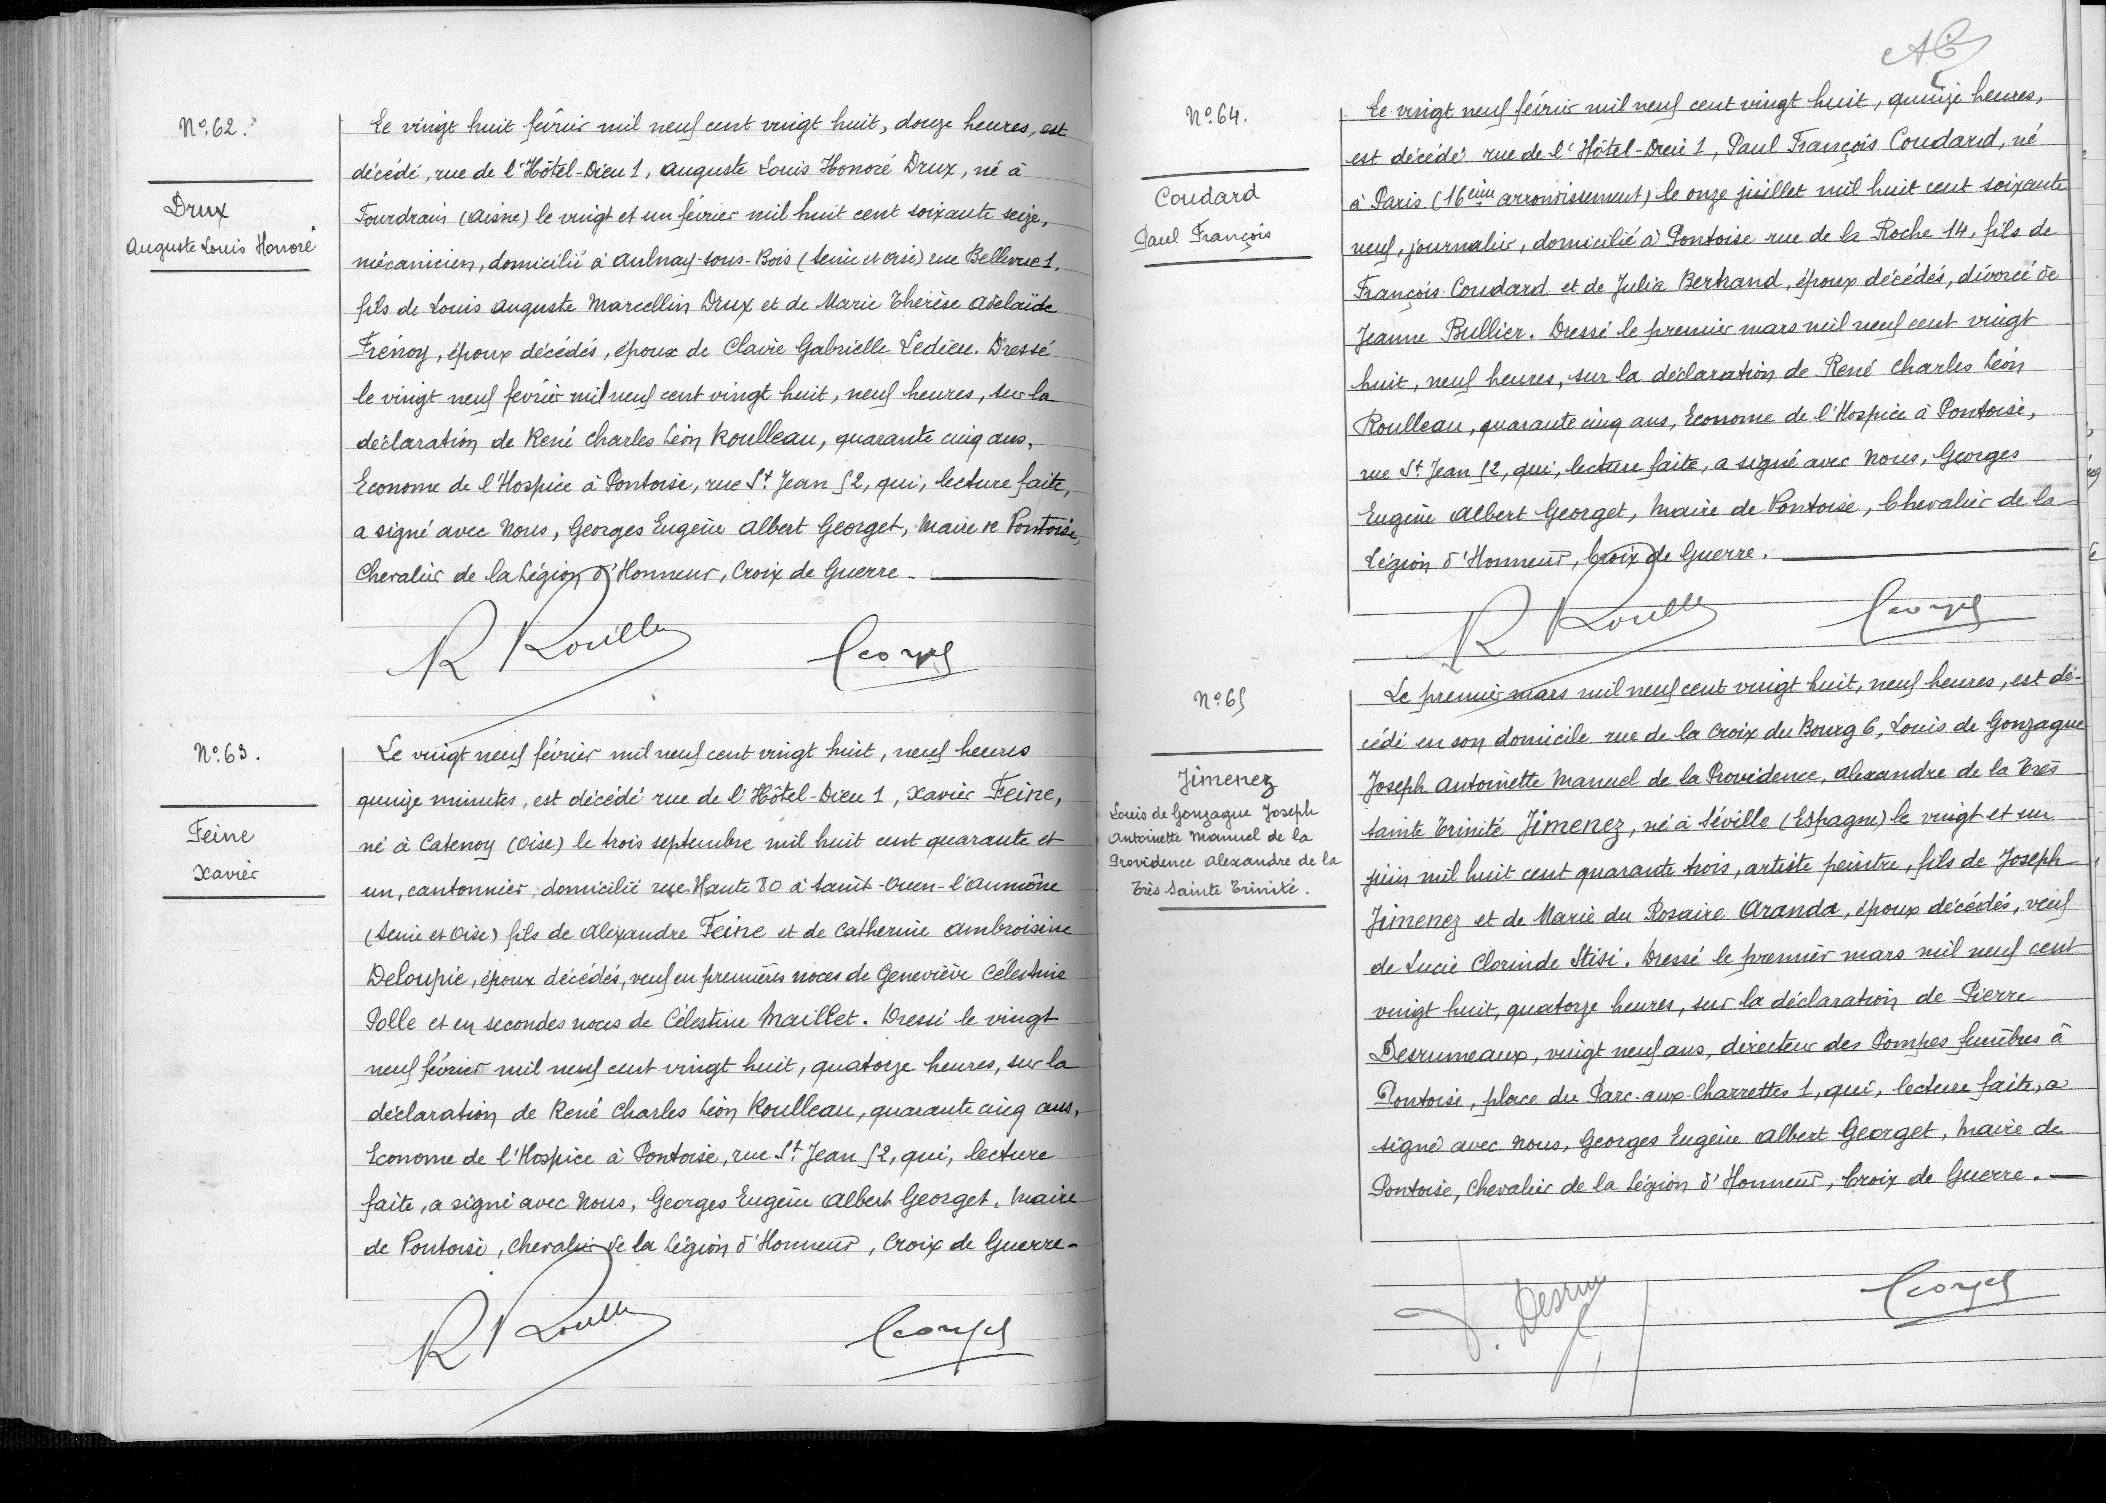 Nº 62.
Drux
Auguste Louis Honoré
Le vingt huit février mil neuf cent vingt huit, douze heures, est
décédé, rue de l'Hôtel-Dieu 1, Auguste Louis Honoré Drux, né à
Fourdrain (Aisne) le vingt et un février mil huit cent soixante seize,
mécanicien, domicilié à Aulnay-sous-Bois (Seine et Oise) rue Bellevue 1,
fils de Louis Auguste Marcellin Drux et de Marie Thérèse Adélaïde
Frénoy, époux décédés, époux de Claire Gabrielle Ledieu. Dressé
le vingt neuf février mil neuf cent vingt huit, neuf heures, sur la
déclaration de René Charles Léon Roulleau, quarante cinq ans,
Econome de l'Hospice à Pontoise, rue St Jean 52, qui, lecture faite,
a signé avec Nous, Georges Eugène Albert Georget, Maire de Pontoise,
Chevalier de la Légion d'Honneur, Croix de Guerre.
R Roulleau
Georget
Nº 63.
Feine
Xavier
Le vingt neuf février mil neuf cent vingt huit, neuf heures
quinze minutes, est décédé rue de l'Hôtel-Dieu 1, Xavier Feine,
né à Catenoy (Oise) le trois septembre mil huit cent quarante et
un, cantonnier, domicilié rue Haute 80 à Saint-Ouen-l'Aumône
(Seine et Oise) fils de Alexandre Feine et de Catherine Ambroisine
Deloupie, époux décédés, veuf en premières noces de Geneviève Célestine
Polle et en secondes noces de Célestine Maillet. Dressé le vingt
neuf février mil neuf cent vingt huit, quatorze heures, sur la
déclaration de René Charles Léon Roulleau, quarante cinq ans,
Econome de l'Hospice à Pontoise, rue St Jean 52, qui, lecture
faite, a signé avec Nous, Georges Eugène Albert Georget, Maire
de Pontoise, Chevalier de la Légion d'Honneur, Croix de Guerre.
R Roulleau
Georget
Nº 64.
Coudard
Paul François
Le vingt neuf février mil neuf cent vingt huit, quinze heures,
est décédé rue de l'Hôtel-Dieu 1, Paul François Coudard, né
à Paris (16ème arrondissement) le onze juillet mil huit cent soixante
neuf, journalier, domicilié à Pontoise rue de la Roche 14, fils de
François Coudard et de Julia Bertrand, époux décédés, divorcé de
Jeanne Bullier. Dressé le premier mars mil neuf cent vingt
huit, neuf heures, sur la déclaration de René Charles Léon
Roulleau, quarante cinq ans, Econome de l'Hospice à Pontoise,
rue St Jean 52, qui, lecture faite, a signé avec Nous, Georges
Eugène Albert Georget, Maire de Pontoise, Chevalier de la
Légion d'Honneur, Croix de Guerre.
R Roulleau
Georget
Nº 65
Jimenez
Louis de Gonzague Joseph
Antoinette Manuel de la
Providence Alexandre de la
Très Sainte Trinité.
Le premier mars mil neuf cent vingt huit, neuf heures, est dé-
cédé en son domicile rue de la Croix du Bourg 6, Louis de Gonzague
Joseph Antoinette Manuel de la Providence, Alexandre de la Très
Sainte Trinité Jimenez, né à Séville (Espagne) le vingt et un
juin mil huit cent quarante trois, artiste peintre, fils de Joseph
Jimenez et de Marie du Rosaire Aranda, époux décédés, veuf
de Lucie Clorinde Stisi. Dressé le premier mars mil neuf cent
vingt huit, quatorze heures, sur la déclaration de Pierre
Desrumeaux, vingt neuf ans, directeur des Pompes funèbres à
Pontoise, place du Parc-aux-Charrettes 1, qui, lecture faite, a
signé avec Nous, Georges Eugène Albert Georget, Maire de
Pontoise, Chevalier de la Légion d'Honneur, Croix de Guerre.
Georget